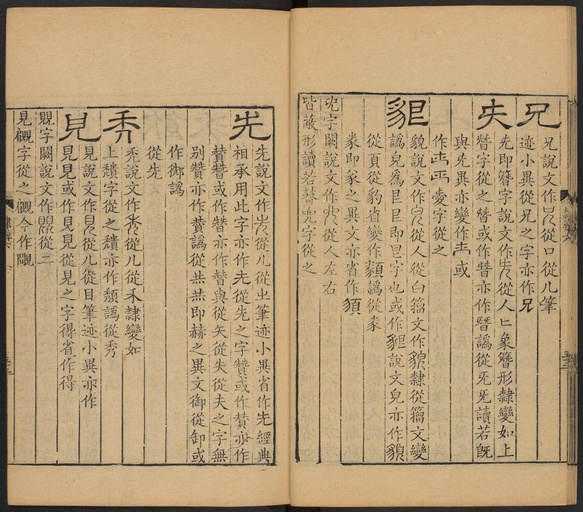 兄 兄說文作從口從儿筆
迹小異從兄之字亦作兄
夫 先即簪字說文作從人匕象簪形隸變如上
朁字從之朁或作替亦作晉譌從旡旡讀若旣
與先異亦變作或
作愛字從之
貌說文作從人從白籀文作貌隸從籀文變
譌皃為即字也或作說文皃亦作貌
從頁從豹省變作類譌從彖
彖即豕之異文亦省作
兜字闕說文作從人左右
皆蔽形讀若瞽兜字從之
先 先說文作從儿從出筆迹小異省作先經典
相承用此字亦作夫從先之字贊或作賛亦作
賛或作替亦作替與從矢從失從夫之字無
別贊亦作賛譌從烾烾即赫之異文御從卸或
作御譌
從先
禿 禿說文作從儿從禾隸變如
上穨字從之穨亦作頹譌從秀
見 見說文作從儿從目筆迹小異亦作
見見或作見見從見之字得省作得
覞字闕說文作從二
見覼字從之覼今作